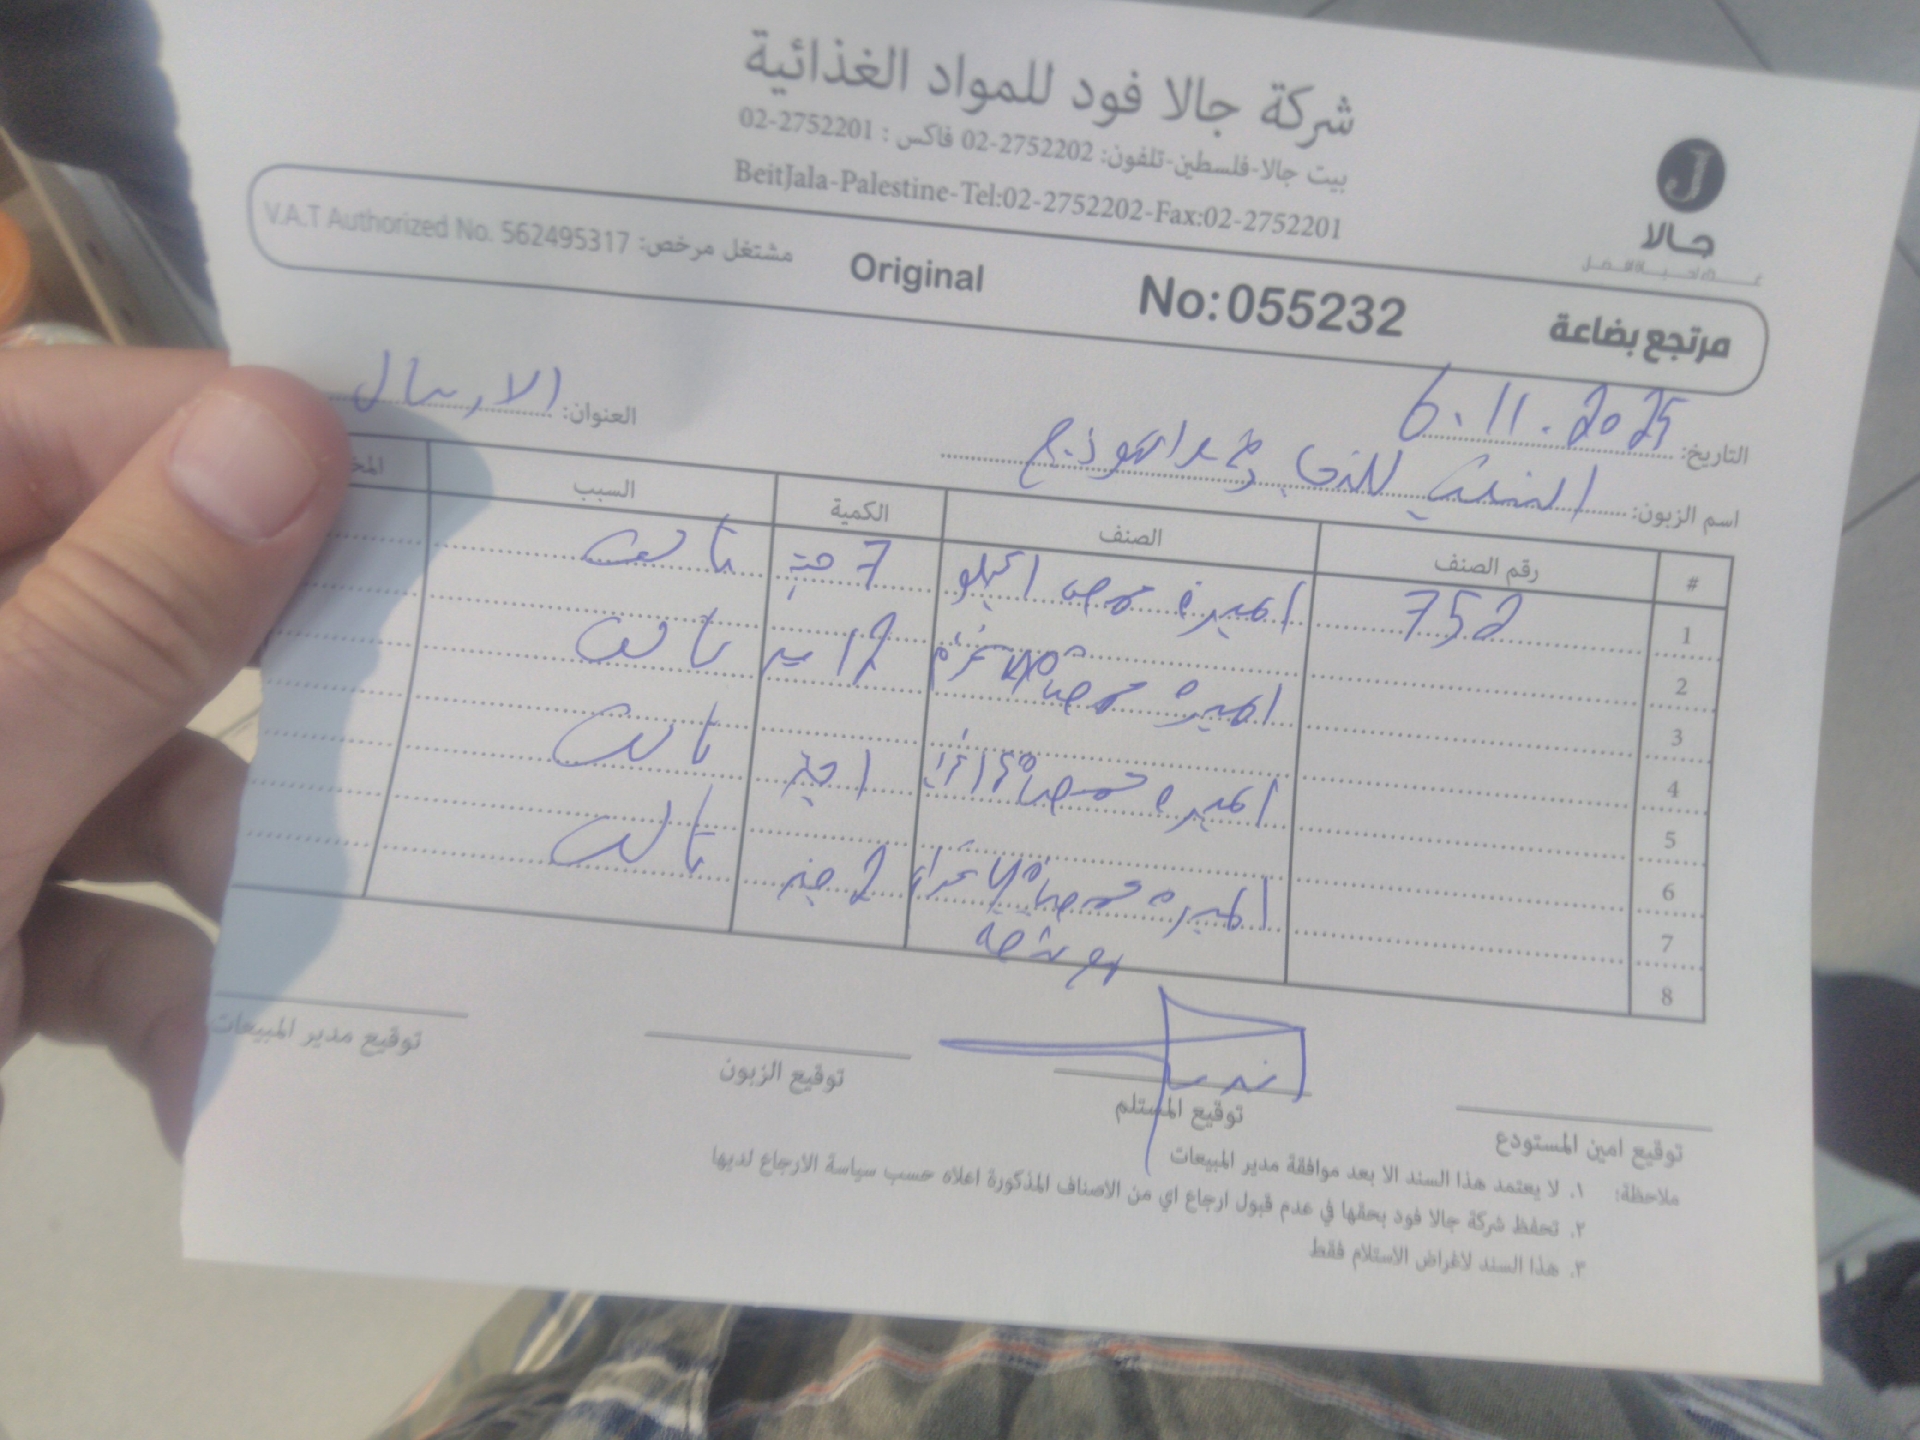 شركة جالا فود للمواد الغذائية
بيت جالا-فلسطين-تلفون: 02-2752202 فاكس : 02-2752201
BeitJala-Palestine-Tel:02-2752202-Fax:02-2752201
J
جالا
مرتجع بضاعة No:055232 Original مشتغل مرخص: V.A.T Authorized No. 562495317
التاريخ: 6.11.2025 العنوان: الارسال
اسم الزبون:
# رقم الصنف الصنف الكمية السبب المخ
1 752 اميرة حمص 7 تالف
2
3 اميرة حمص 12 تالف
4
5 اميرة حمص 1 تالف
6
7 اميرة حمص 2 تالف
8
توقيع امين المستودع توقيع المستلم توقيع الزبون توقيع مدير المبيعات
ملاحظة: ١. لا يعتمد هذا السند الا بعد موافقة مدير المبيعات
٢. تحفظ شركة جالا فود بحقها في عدم قبول ارجاع اي من الاصناف المذكورة اعلاه حسب سياسة الارجاع لديها
٣. هذا السند لاغراض الاستلام فقط